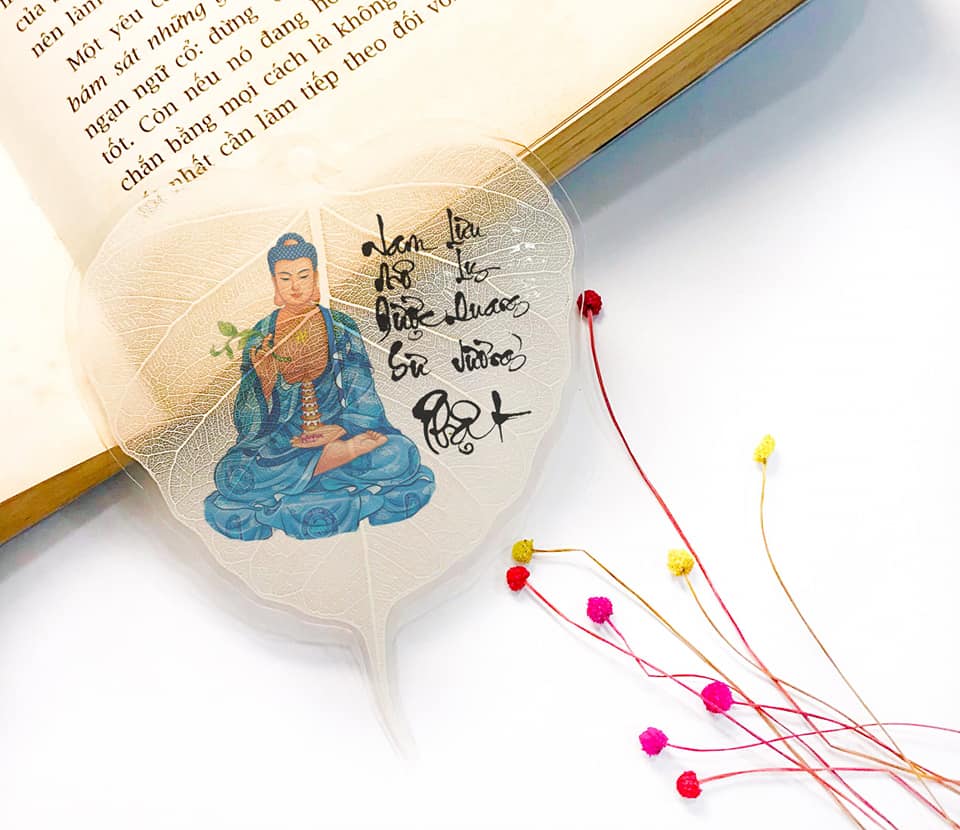 của
nên làm
Một yêu
bám sát những
ngạn ngữ cổ: dừng
tốt. Còn nếu nó đang
chắn bằng mọi cách là không
nhất cần làm tiếp theo đối
Nam
Mô
Dược
Sư
Lưu
Ly
Quang
Vương
Phật